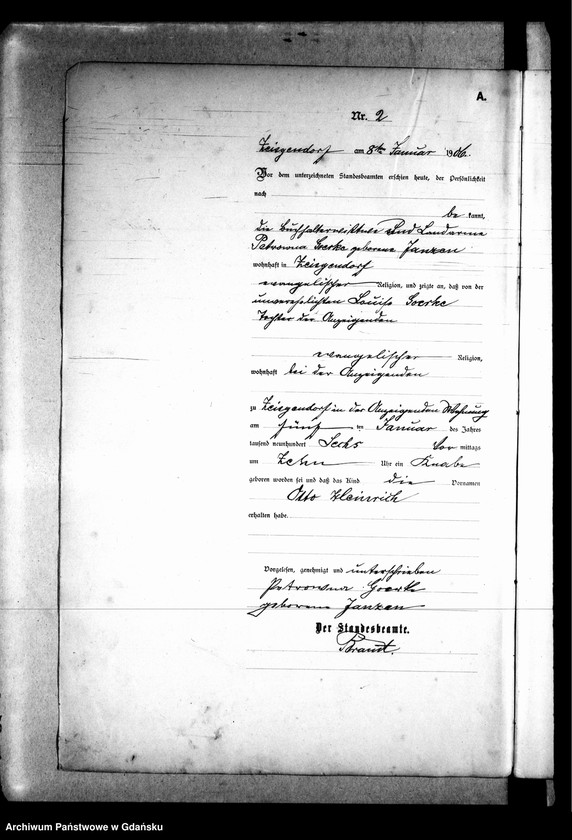 A.
Nr. 2
Zeisgendorf am 8ten Januar 1906.
Vor dem unterzeichneten Standesbeamten erschien heute, der Persönlichkeit
nach
be kannt,
die Buchhalterwittwe
Petrowna Goerke geborene Janzen
wohnhaft in Zeisgendorf
evangelischer Religion, und zeigte an, daß von der
unverehelichten Louise Goerke
Tochter der Anzeigenden
evangelischer Religion,
wohnhaft bei der Anzeigenden
zu Zeisgendorf in der Anzeigenden Wohnung
am fünf ten Januar des Jahres
tausend neunhundert Sechs Vor mittags
um Zehn Uhr ein Knabe
geboren worden sei und daß das Kind die Vornamen
Otto Heinrich
erhalten habe.
Vorgelesen, genehmigt und unterschrieben
Petrowna Goerke
geborene Janzen
Der Standesbeamte.
Brandt.
Archiwum Państwowe w Gdańsku